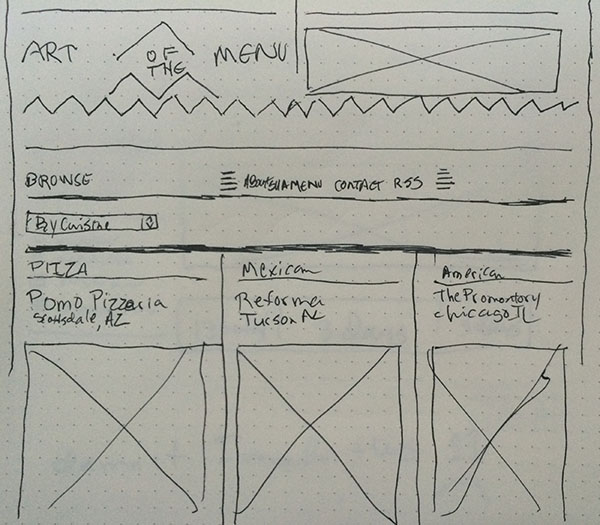 ART OF THE MENU
BROWSE
MENU CONTACT RSS
By Cuisine
PIZZA
Pomo Pizzeria
Scottsdale, AZ
Mexican
Reforma
Tucson AZ
American
The Promontory
chicago IL